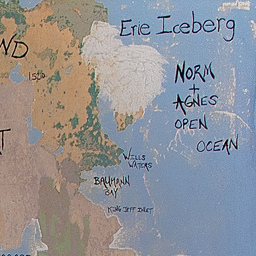 Erie Iceberg
ND
1550
NORM
+
AGNES
OPEN
OCEAN
WILLS
WATERS
BAUMANN
BAY
KING JEFF INLET